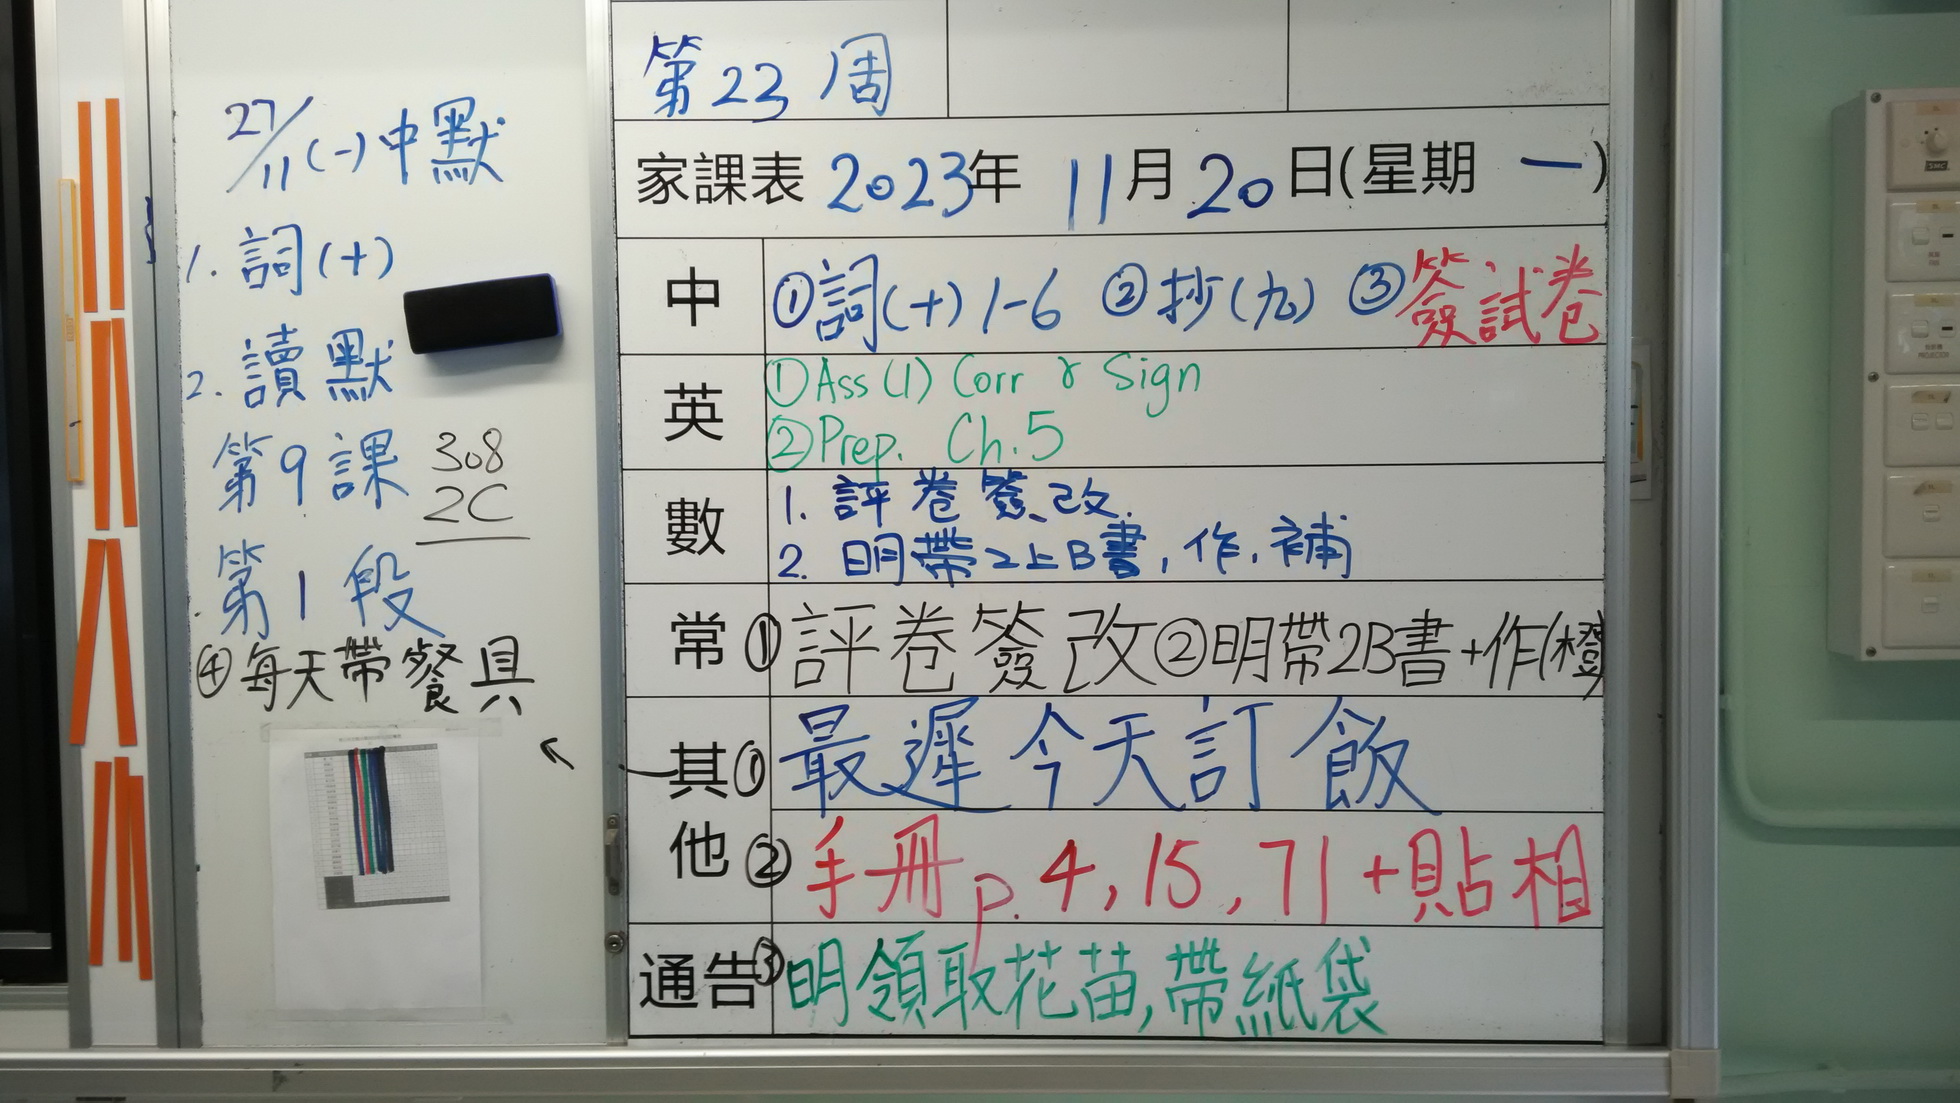 27/11(一)中默
1. 詞(十)
2. 讀默
第9課
308
2C
第1段
④每天帶餐具
第23周
家課表 2023年 11月20日(星期 一)
中 ①詞(十)1-6 ②抄(九) ③簽試卷
英 ①Ass(1) Corr & Sign
②Prep. Ch.5
數 1. 評卷簽、改.
2. 明帶2上B書,作,補
常 ①評卷簽改②明帶2B書+作(橙)
其他 ①最遲今天訂飯
②手冊p.4,15,71+貼相
通告 ③明領取花苗,帶紙袋